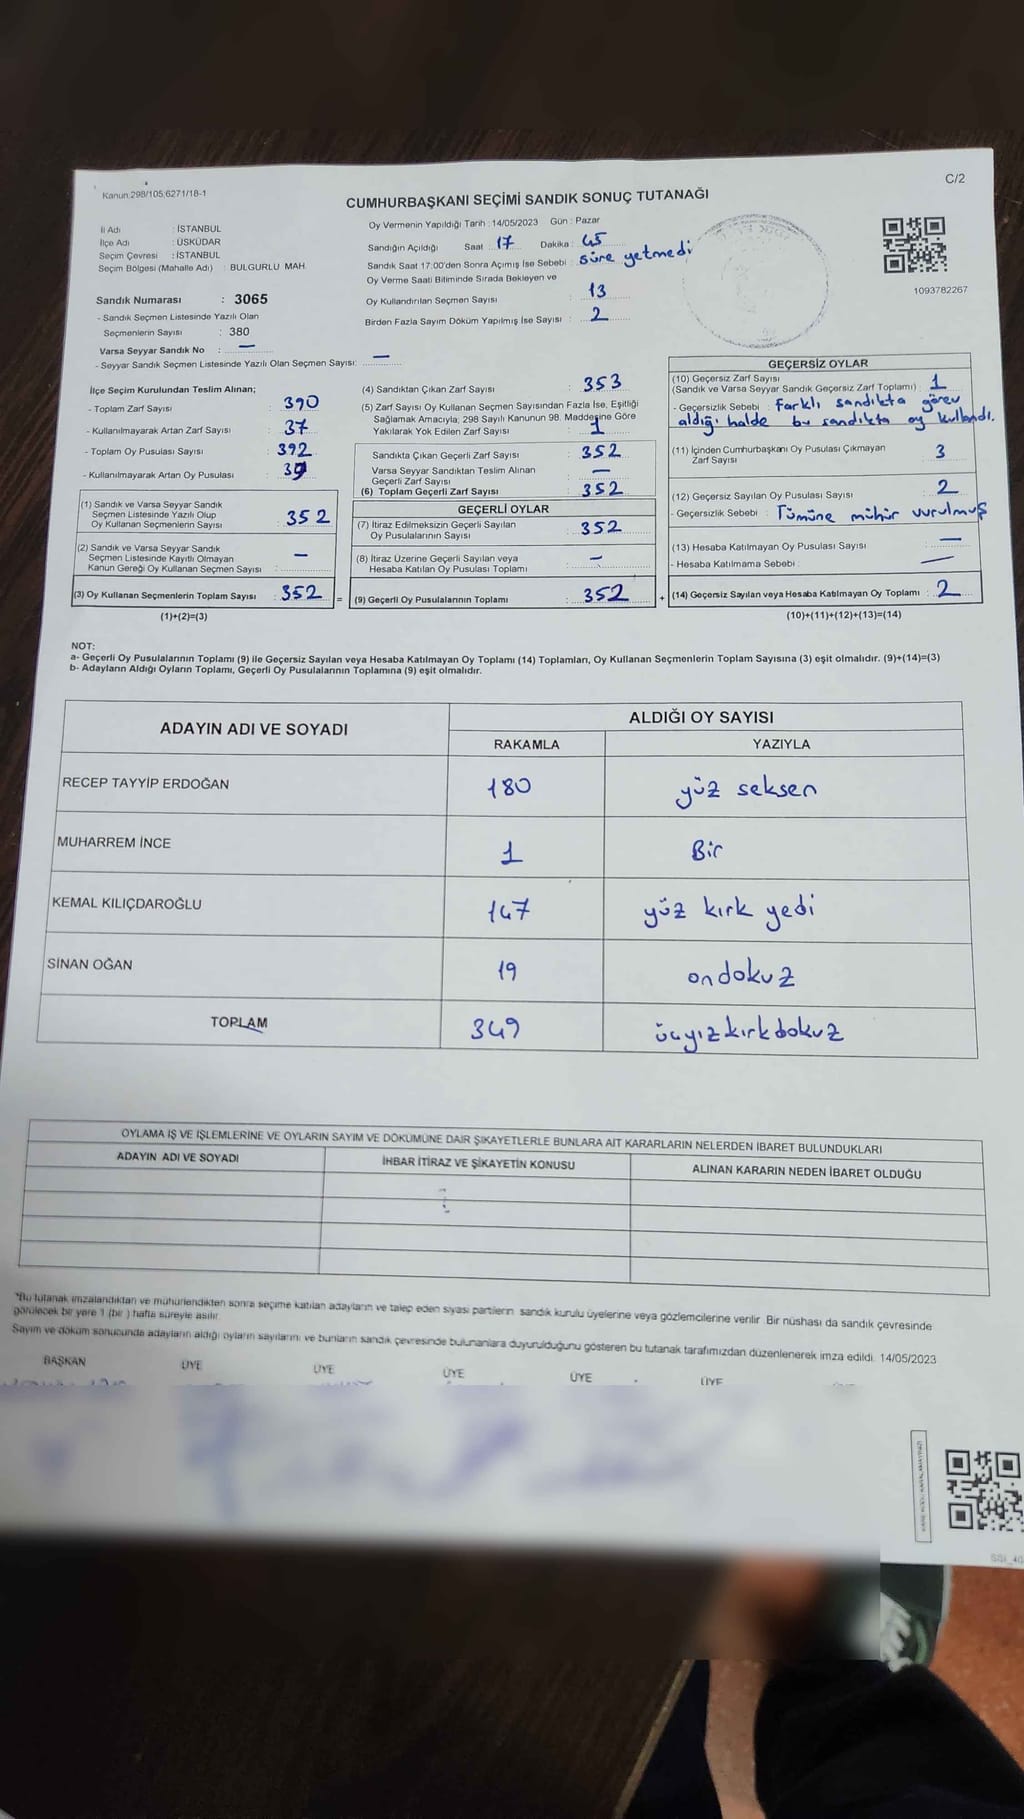 Kanun:298/105;6271/18-1
C/2
CUMHURBAŞKANI SEÇİMİ SANDIK SONUÇ TUTANAĞI
İl Adı : İSTANBUL
İlçe Adı : ÜSKÜDAR
Seçim Çevresi : İSTANBUL
Seçim Bölgesi (Mahalle Adı) : BULGURLU MAH
Sandık Numarası : 3065
- Sandık Seçmen Listesinde Yazılı Olan
Seçmenlerin Sayısı : 380
Varsa Seyyar Sandık No : —
- Seyyar Sandık Seçmen Listesinde Yazılı Olan Seçmen Sayısı: —
Oy Vermenin Yapıldığı Tarih : 14/05/2023 Gün : Pazar
Sandığın Açıldığı Saat : 17 Dakika : 45
Sandık Saat 17:00'den Sonra Açımış İse Sebebi : süre yetmedi
Oy Verme Saati Bitiminde Sırada Bekleyen ve
Oy Kullandırılan Seçmen Sayısı : 13
Birden Fazla Sayım Döküm Yapılmış İse Sayısı : 2
1093782267
İlçe Seçim Kurulundan Teslim Alınan;
- Toplam Zarf Sayısı : 390
- Kullanılmayarak Artan Zarf Sayısı : 37
- Toplam Oy Pusulası Sayısı : 392
- Kullanılmayarak Artan Oy Pusulası : 39
(1) Sandık ve Varsa Seyyar Sandık
Seçmen Listesinde Yazılı Olup
Oy Kullanan Seçmenlerin Sayısı : 352
(2) Sandık ve Varsa Seyyar Sandık
Seçmen Listesinde Kayıtlı Olmayan
Kanun Gereği Oy Kullanan Seçmen Sayısı : —
(3) Oy Kullanan Seçmenlerin Toplam Sayısı : 352 =
(1)+(2)=(3)
(4) Sandıktan Çıkan Zarf Sayısı : 353
(5) Zarf Sayısı Oy Kullanan Seçmen Sayısından Fazla İse, Eşitliği
Sağlamak Amacıyla; 298 Sayılı Kanunun 98. Maddesine Göre
Yakılarak Yok Edilen Zarf Sayısı : 1
Sandıkta Çıkan Geçerli Zarf Sayısı : 352
Varsa Seyyar Sandıktan Teslim Alınan
Geçerli Zarf Sayısı : —
(6) Toplam Geçerli Zarf Sayısı : 352
GEÇERLİ OYLAR
(7) İtiraz Edilmeksizin Geçerli Sayılan
Oy Pusulalarının Sayısı : 352
(8) İtiraz Üzerine Geçerli Sayılan veya
Hesaba Katılan Oy Pusulası Toplamı : —
(9) Geçerli Oy Pusulalarının Toplamı : 352 +
GEÇERSİZ OYLAR
(10) Geçersiz Zarf Sayısı
(Sandık ve Varsa Seyyar Sandık Geçersiz Zarf Toplamı) : 1
- Geçersizlik Sebebi : farklı sandıkta görev
aldığı halde bu sandıkta oy kullandı.
(11) İçinden Cumhurbaşkanı Oy Pusulası Çıkmayan
Zarf Sayısı : 3
(12) Geçersiz Sayılan Oy Pusulası Sayısı : 2
- Geçersizlik Sebebi : Tümüne mühür vurulmuş
(13) Hesaba Katılmayan Oy Pusulası Sayısı : —
- Hesaba Katılmama Sebebi : —
(14) Geçersiz Sayılan veya Hesaba Katılmayan Oy Toplamı : 2
(10)+(11)+(12)+(13)=(14)
NOT:
a- Geçerli Oy Pusulalarının Toplamı (9) ile Geçersiz Sayılan veya Hesaba Katılmayan Oy Toplamı (14) Toplamları, Oy Kullanan Seçmenlerin Toplam Sayısına (3) eşit olmalıdır. (9)+(14)=(3)
b- Adayların Aldığı Oyların Toplamı, Geçerli Oy Pusulalarının Toplamına (9) eşit olmalıdır.
ADAYIN ADI VE SOYADI
ALDIĞI OY SAYISI
RAKAMLA YAZIYLA
RECEP TAYYİP ERDOĞAN 180 yüz seksen
MUHARREM İNCE 1 Bir
KEMAL KILIÇDAROĞLU 147 yüz kırk yedi
SİNAN OĞAN 19 on dokuz
TOPLAM 349 üçyüzkırkdokuz
OYLAMA İŞ VE İŞLEMLERİNE VE OYLARIN SAYIM VE DÖKÜMÜNE DAİR ŞİKAYETLERLE BUNLARA AİT KARARLARIN NELERDEN İBARET BULUNDUKLARI
ADAYIN ADI VE SOYADI İHBAR İTİRAZ VE ŞİKAYETİN KONUSU ALINAN KARARIN NEDEN İBARET OLDUĞU
*Bu tutanak imzalandıktan ve mühürlendikten sonra seçime katılan adayların ve talep eden siyasi partilerin sandık kurulu üyelerine veya gözlemcilerine verilir. Bir nüshası da sandık çevresinde
görülecek bir yere 1 (bir ) hafta süreyle asılır.
Sayım ve döküm sonucunda adayların aldığı oyların sayılarını ve bunların sandık çevresinde bulunanlara duyurulduğunu gösteren bu tutanak tarafımızdan düzenlenerek imza edildi. 14/05/2023
BAŞKAN ÜYE ÜYE ÜYE ÜYE ÜYE